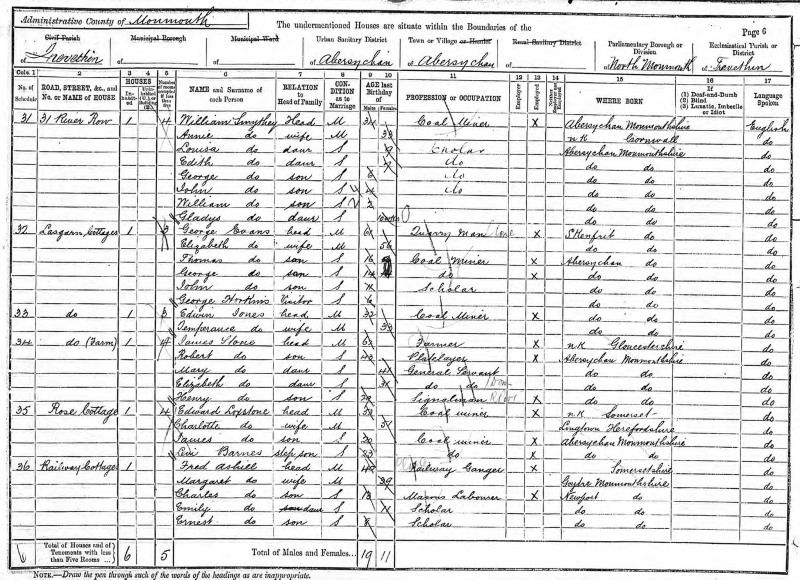 Administrative County of Monmouth
The undermentioned Houses are situate within the Boundaries of the
Page 6
Civil Parish of Trevethin
Municipal Borough of
Municipal Ward of
Urban Sanitary District of Abersychan
Town or Village or Hamlet of Abersychan
Rural Sanitary District of
Parliamentary Borough or Division of North Monmouth
Ecclesiastical Parish or District of Trevethin
Cols. 1 2 3 4 5 6 7 8 9 10 11 12 13 14 15 16 17
No. of Schedule
ROAD, STREET, &c., and No. or NAME of HOUSE
HOUSES
NAME and Surname of each Person
RELATION to Head of Family
CONDITION as to Marriage
AGE last Birthday of
Males Females
PROFESSION or OCCUPATION
Employer
Employed
WHERE BORN
If (1) Deaf-and-Dumb (2) Blind (3) Lunatic, Imbecile or Idiot
Language Spoken
31 31 River Row 1 4 William Head M Coal Miner X Abersychan Monmouthshire English
Annie do wife M 33 n K Cornwall do
Louisa do daur S 9 Scholar Abersychan Monmouthshire do
Edith do daur S 7 do do do do
George do son S 6 do do do do
John do son S 4 do do do do
William do son S 2 do do do
Gladys do daur S do do do
32 Lasgarn Cottages 1 3 George Evans head M 61 Quarry Man X Skenfrit do do
Elizabeth do wife M 56 do do do
Thomas do son S 16 Coal Miner X Abersychan do do
George do son S 14 do X do do do
John do son S 11 Scholar do do do
George Horkins Visitor S 6 do do do
33 do 1 3 Edwin Jones head M 32 Coal Miner X do do do
Temperance do wife M 33 do do do
34 do (Farm) 1 4 James Stone head M Farmer X n K Gloucestershire do
Robert do son S 43 Platelayer X Abersychan Monmouthshire do
Mary do daur S 41 General Servant do do do
Elizabeth do daur S 31 do do do do do
Henry do son S 29 Signalman X do do do
35 Rose Cottage 1 4 Edward Loxstone head M Coal miner X n K Somerset do
Charlotte do wife M 51 Longtown Herefordshire do
James do son S 20 Coal miner X Abersychan Monmouthshire do
Levi Barnes step son S 23 do X do do do
36 Railway Cottages 1 Fred Ashill head M Railway Ganger X Somersetshire do
Margaret do wife M 39 Goytre Monmouthshire do
Charles do son S 13 Masons Labourer X Newport do do
Emily do daur S 11 Scholar do do do
Ernest do son S 8 Scholar do do do
6 Total of Houses and of Tenements with less than Five Rooms ... 6 5 Total of Males and Females... 19 11
NOTE.—Draw the pen through such of the words of the headings as are inappropriate.